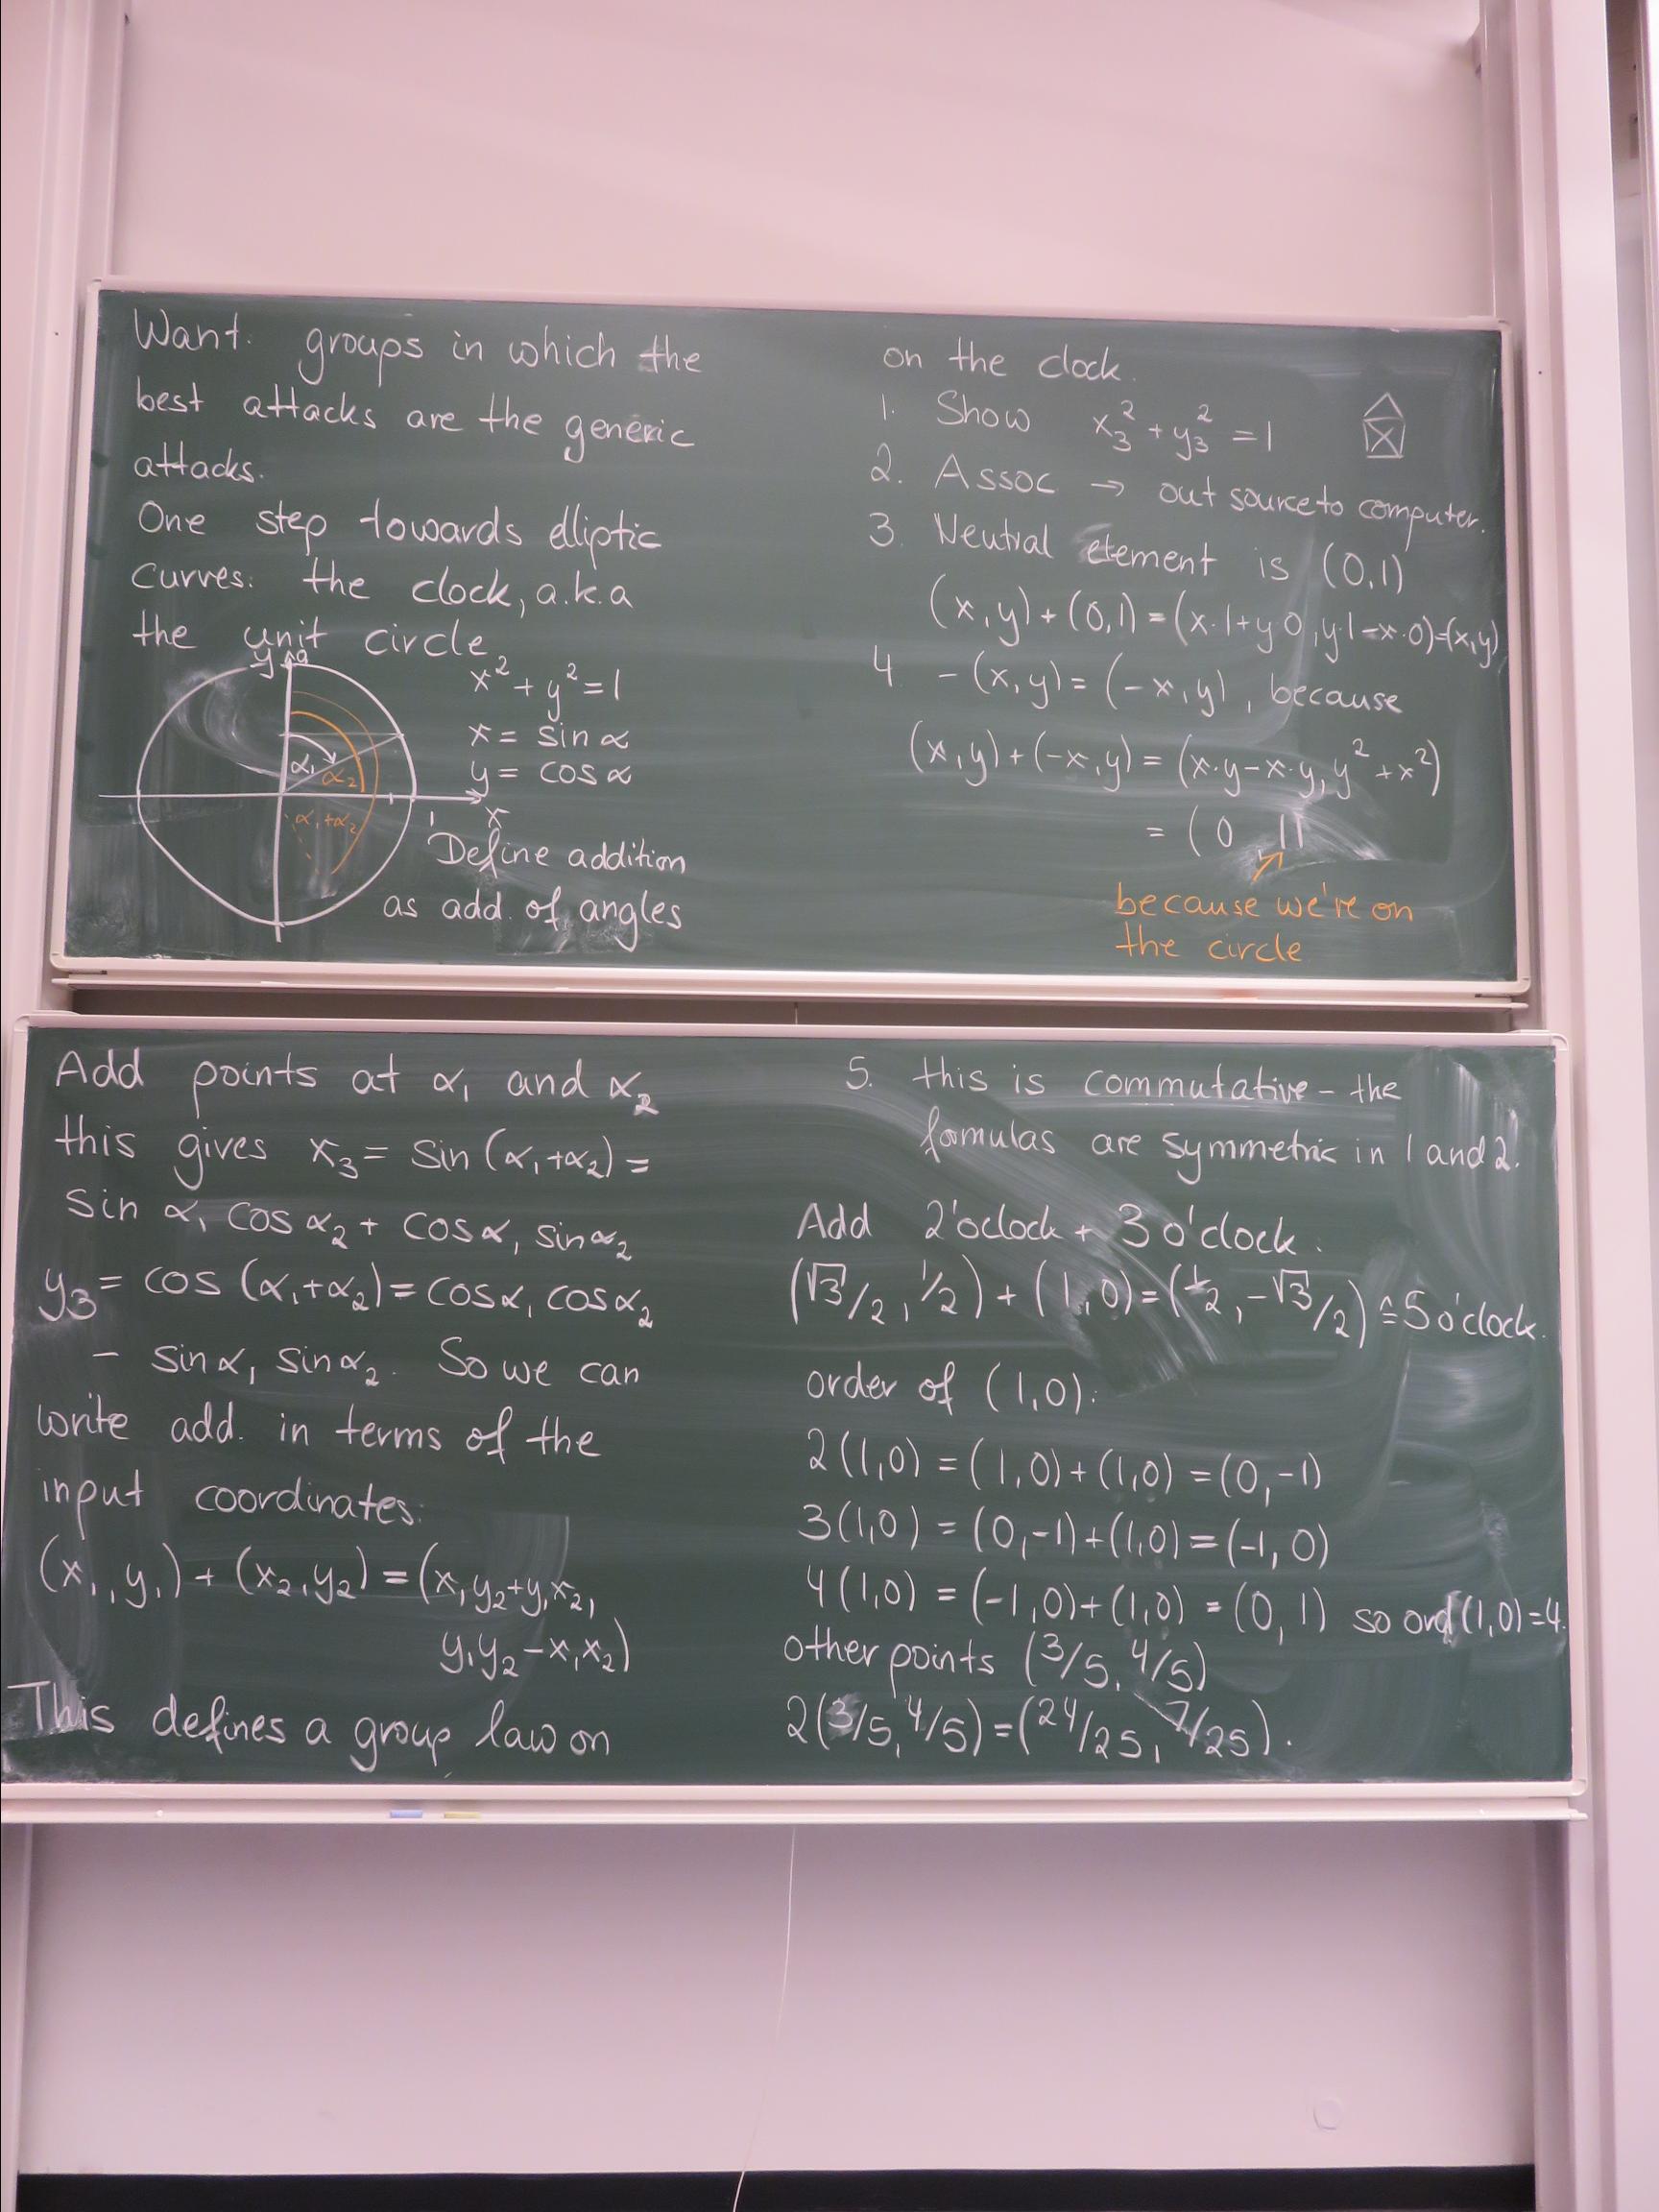 Want: groups in which the
best attacks are the generic
attacks.
One step towards elliptic
curves: the clock, a.k.a
the unit circle.
y
x² + y² = 1
x = sin α
y = cos α
α₁
α₂
α₁+α₂
1
x
Define addition
as add. of angles
on the clock.
1. Show x₃² + y₃² = 1
2. Assoc → out source to computer.
3. Neutral element is (0,1)
(x,y) + (0,1) = (x·1+y·0, y·1-x·0) = (x,y)
4 -(x,y) = (-x,y), because
(x,y) + (-x,y) = (x·y-x·y, y² + x²)
= (0, 1)
because we're on
the circle
Add points at α₁ and α₂
this gives x₃ = sin (α₁+α₂) =
sin α₁ cos α₂ + cos α₁ sin α₂
y₃ = cos (α₁+α₂) = cos α₁ cos α₂
- sin α₁ sin α₂. So we can
write add. in terms of the
input coordinates:
(x₁,y₁) + (x₂,y₂) = (x₁y₂+y₁x₂,
y₁y₂-x₁x₂)
This defines a group law on
5. this is commutative - the
formulas are symmetric in 1 and 2.
Add 2'oclock + 3 o'clock.
(√3/2, 1/2) + (1,0) = (1/2, -√3/2) ≙ 5 o'clock.
order of (1,0):
2(1,0) = (1,0) + (1,0) = (0,-1)
3(1,0) = (0,-1) + (1,0) = (-1,0)
4(1,0) = (-1,0) + (1,0) = (0,1) so ord(1,0)=4.
other points (3/5, 4/5)
2(3/5, 4/5) = (24/25, 7/25).